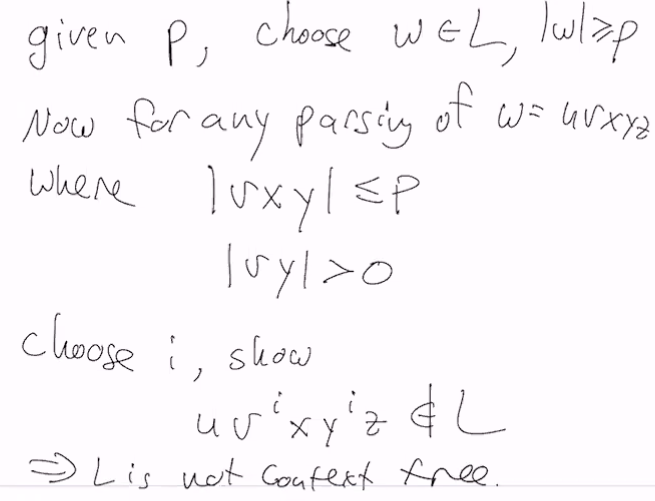 given p, choose w ∈ L, |w| ≥ p
Now for any parsing of w = uvxyz
where |vxy| ≤ p
|vy| > 0
choose i, show
uvⁱxyⁱz ∉ L
⇒ L is not Context free.